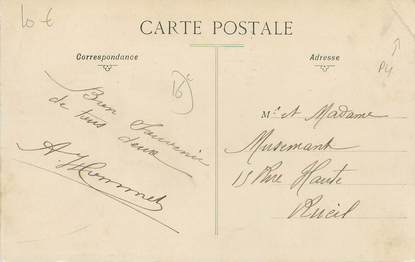 10 €
CARTE POSTALE
Correspondance
Adresse
P4
Bon Souvenir
de tous deux
M. et Madame
15 Rue Haute
Rueil